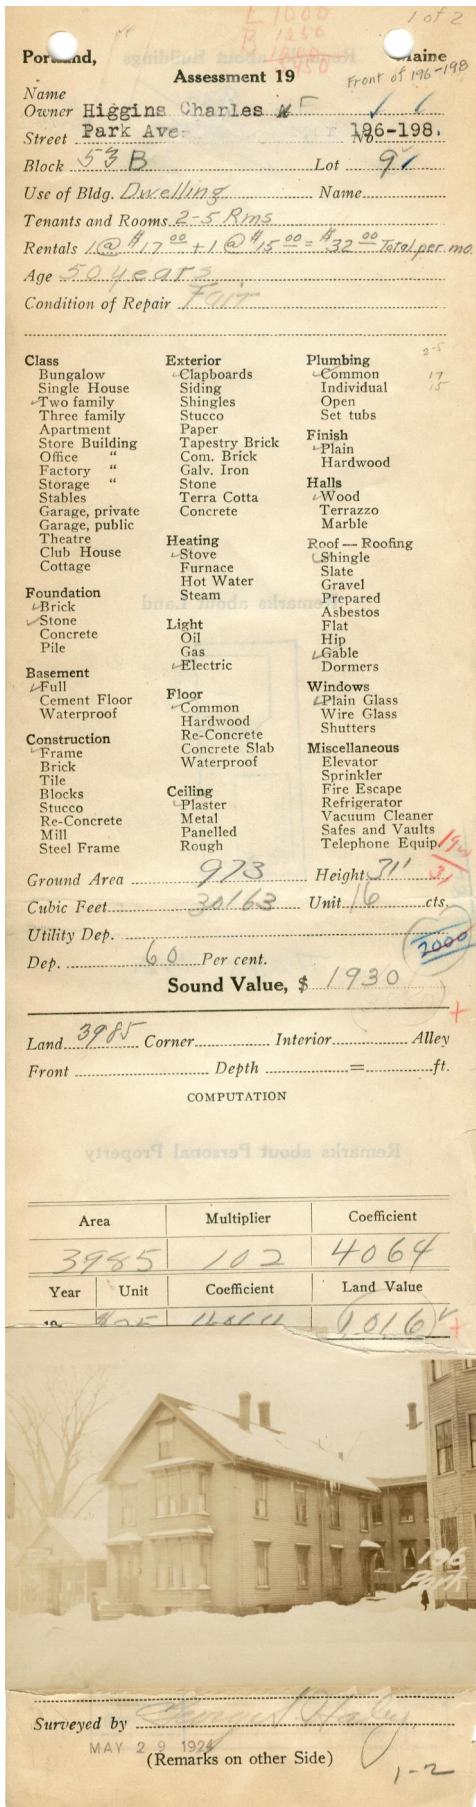 1 of 2
L 1000
B 1250
Portland, Maine
Assessment 19
Front of 196-198
Name
Owner Higgins Charles F
Street Park Ave. No. 196-198.
Block 53 B Lot 9
Use of Bldg. Dwelling Name
Tenants and Rooms 2-5 Rms
Rentals 1 @ $17 00 + 1 @ $15 00 = $32 00 Total per mo.
Age 50 years
Condition of Repair Fair
2-5
17
15
Class
Bungalow
Single House
Two family
Three family
Apartment
Store Building
Office "
Factory "
Storage "
Stables
Garage, private
Garage, public
Theatre
Club House
Cottage
Foundation
Brick
Stone
Concrete
Pile
Basement
Full
Cement Floor
Waterproof
Construction
Frame
Brick
Tile
Blocks
Stucco
Re-Concrete
Mill
Steel Frame
Exterior
Clapboards
Siding
Shingles
Stucco
Paper
Tapestry Brick
Com. Brick
Galv. Iron
Stone
Terra Cotta
Concrete
Heating
Stove
Furnace
Hot Water
Steam
Light
Oil
Gas
Electric
Floor
Common
Hardwood
Re-Concrete
Concrete Slab
Waterproof
Ceiling
Plaster
Metal
Panelled
Rough
Plumbing
Common
Individual
Open
Set tubs
Finish
Plain
Hardwood
Halls
Wood
Terrazzo
Marble
Roof — Roofing
Shingle
Slate
Gravel
Prepared
Asbestos
Flat
Hip
Gable
Dormers
Windows
Plain Glass
Wire Glass
Shutters
Miscellaneous
Elevator
Sprinkler
Fire Escape
Refrigerator
Vacuum Cleaner
Safes and Vaults
Telephone Equip.
Ground Area 973 Height 31'
Cubic Feet 30163 Unit 16 cts.
Utility Dep.
2000
Dep. 60 Per cent.
Sound Value, $ 1930
Land 3985 Corner Interior Alley
Front Depth = ft.
COMPUTATION
Remarks about Personal Property
Area Multiplier Coefficient
3985 102 4064
Year Unit Coefficient Land Value
1016
196
Park
Surveyed by
MAY 29 1924
(Remarks on other Side)
1-2